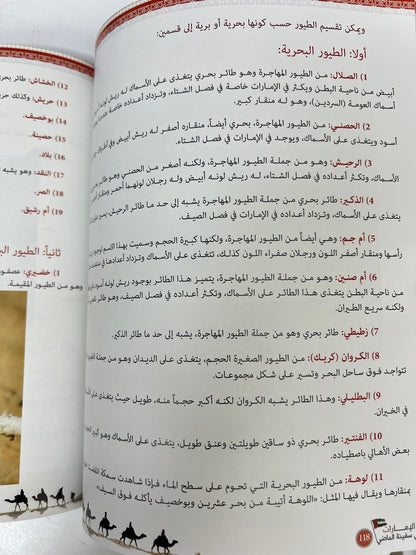 ويمكن تقسيم الطيور حسب كونها بحرية أو برية إلى قسمين:
أولا: الطيور البحرية:
1) الصلال: من الطيور المهاجرة، وهو طائر بحري يتغذى على الأسماك له ريش
أبيض من ناحية البطن ويكثر في الإمارات خاصة في فصل الشتاء، وتزداد أعداده خاصة
أسماك العومة (السردين)، وهو له منقار كبير.
2) الحصني: من الطيور المهاجرة، بحري أيضاً، منقاره أصفر له ريش أبيض وفي
أسود ويتغذى على الأسماك، ويوجد في الإمارات في فصل الشتاء.
3) الرحيش: وهو من الطيور المهاجرة، ولكنه أصغر من الحصني وهو طائر
الأسماك، وتكثر أعداده في فصل الشتاء، له ريش لونه أبيض وله رجلان لونهما أحمر
4) الدكير: طائر بحري من جملة الطيور المهاجرة يشبه إلى حد ما طائر الرحيش
على الأسماك، وتزداد أعداده في الإمارات في فصل الصيف.
5) أم جم: وهي أيضاً من الطيور المهاجرة، ولكنها كبيرة الحجم وسميت بهذا الاسم
رأسها ومنقار أصفر اللون ورجلان صفراء اللون كذلك، تتغذى على الأسماك وتزداد أعدادها في
6) أم صنين: وهو من جملة الطيور المهاجرة، يتميز هذا الطائر بوجود ريش لونه
من ناحية البطن يتغذى هذا الطائر على الأسماك، وتكثر أعداده في فصل الصيف، وهو
ولكنه سريع الطيران.
7) زطيطي: طائر بحري وهو من جملة الطيور المهاجرة، يشبه إلى حد ما طائر الدكير.
8) الكروان (كريك): من الطيور الصغيرة الحجم، يتغذى على الديدان وهو من جملة
تتواجد فوق ساحل البحر وتسير على شكل مجموعات.
9) البطليلي: وهذا الطائر يشبه الكروان لكنه أكبر حجماً منه، طويل حيث يتغذى على
في الخيران.
10) الفنتير: طائر بحري ذو ساقين طويلتين وعنق طويل، يتغذى على الأسماك وهو كبير
بعض الأهالي باصطياده.
11) لوهة: من الطيور البحرية التي تحوم على سطح الماء فإذا شاهدت سمكة
بمنقارها ويقال فيها المثل: «اللوهة أتيبة من بحر عشرين وبوخصيف يأكله فوق السيف».
118
الإمارات
سفينة الماضي
12) الخشاش: طائر
13) حريش: وكذلك
14) بوخصيف.
15) حصينة.
16) بلاد.
17) النقد: وهو يشبه
18) الصر.
19) أم رشيق.
ثانياً: الطيور
1) خضيري:
وهو من الطيور المقيمة.